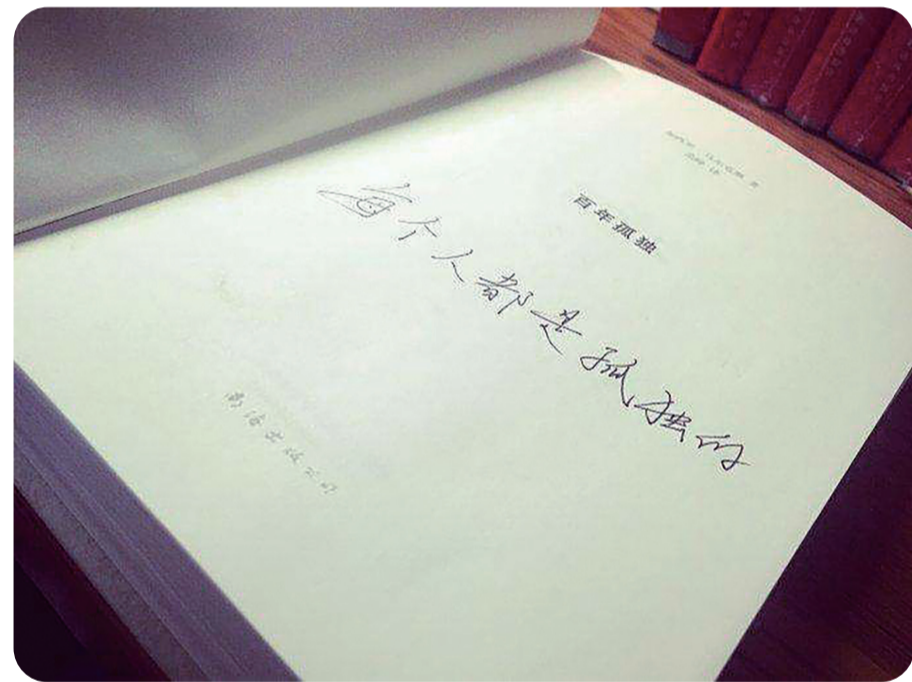 百年孤独
每个人都是孤独的
南海出版公司